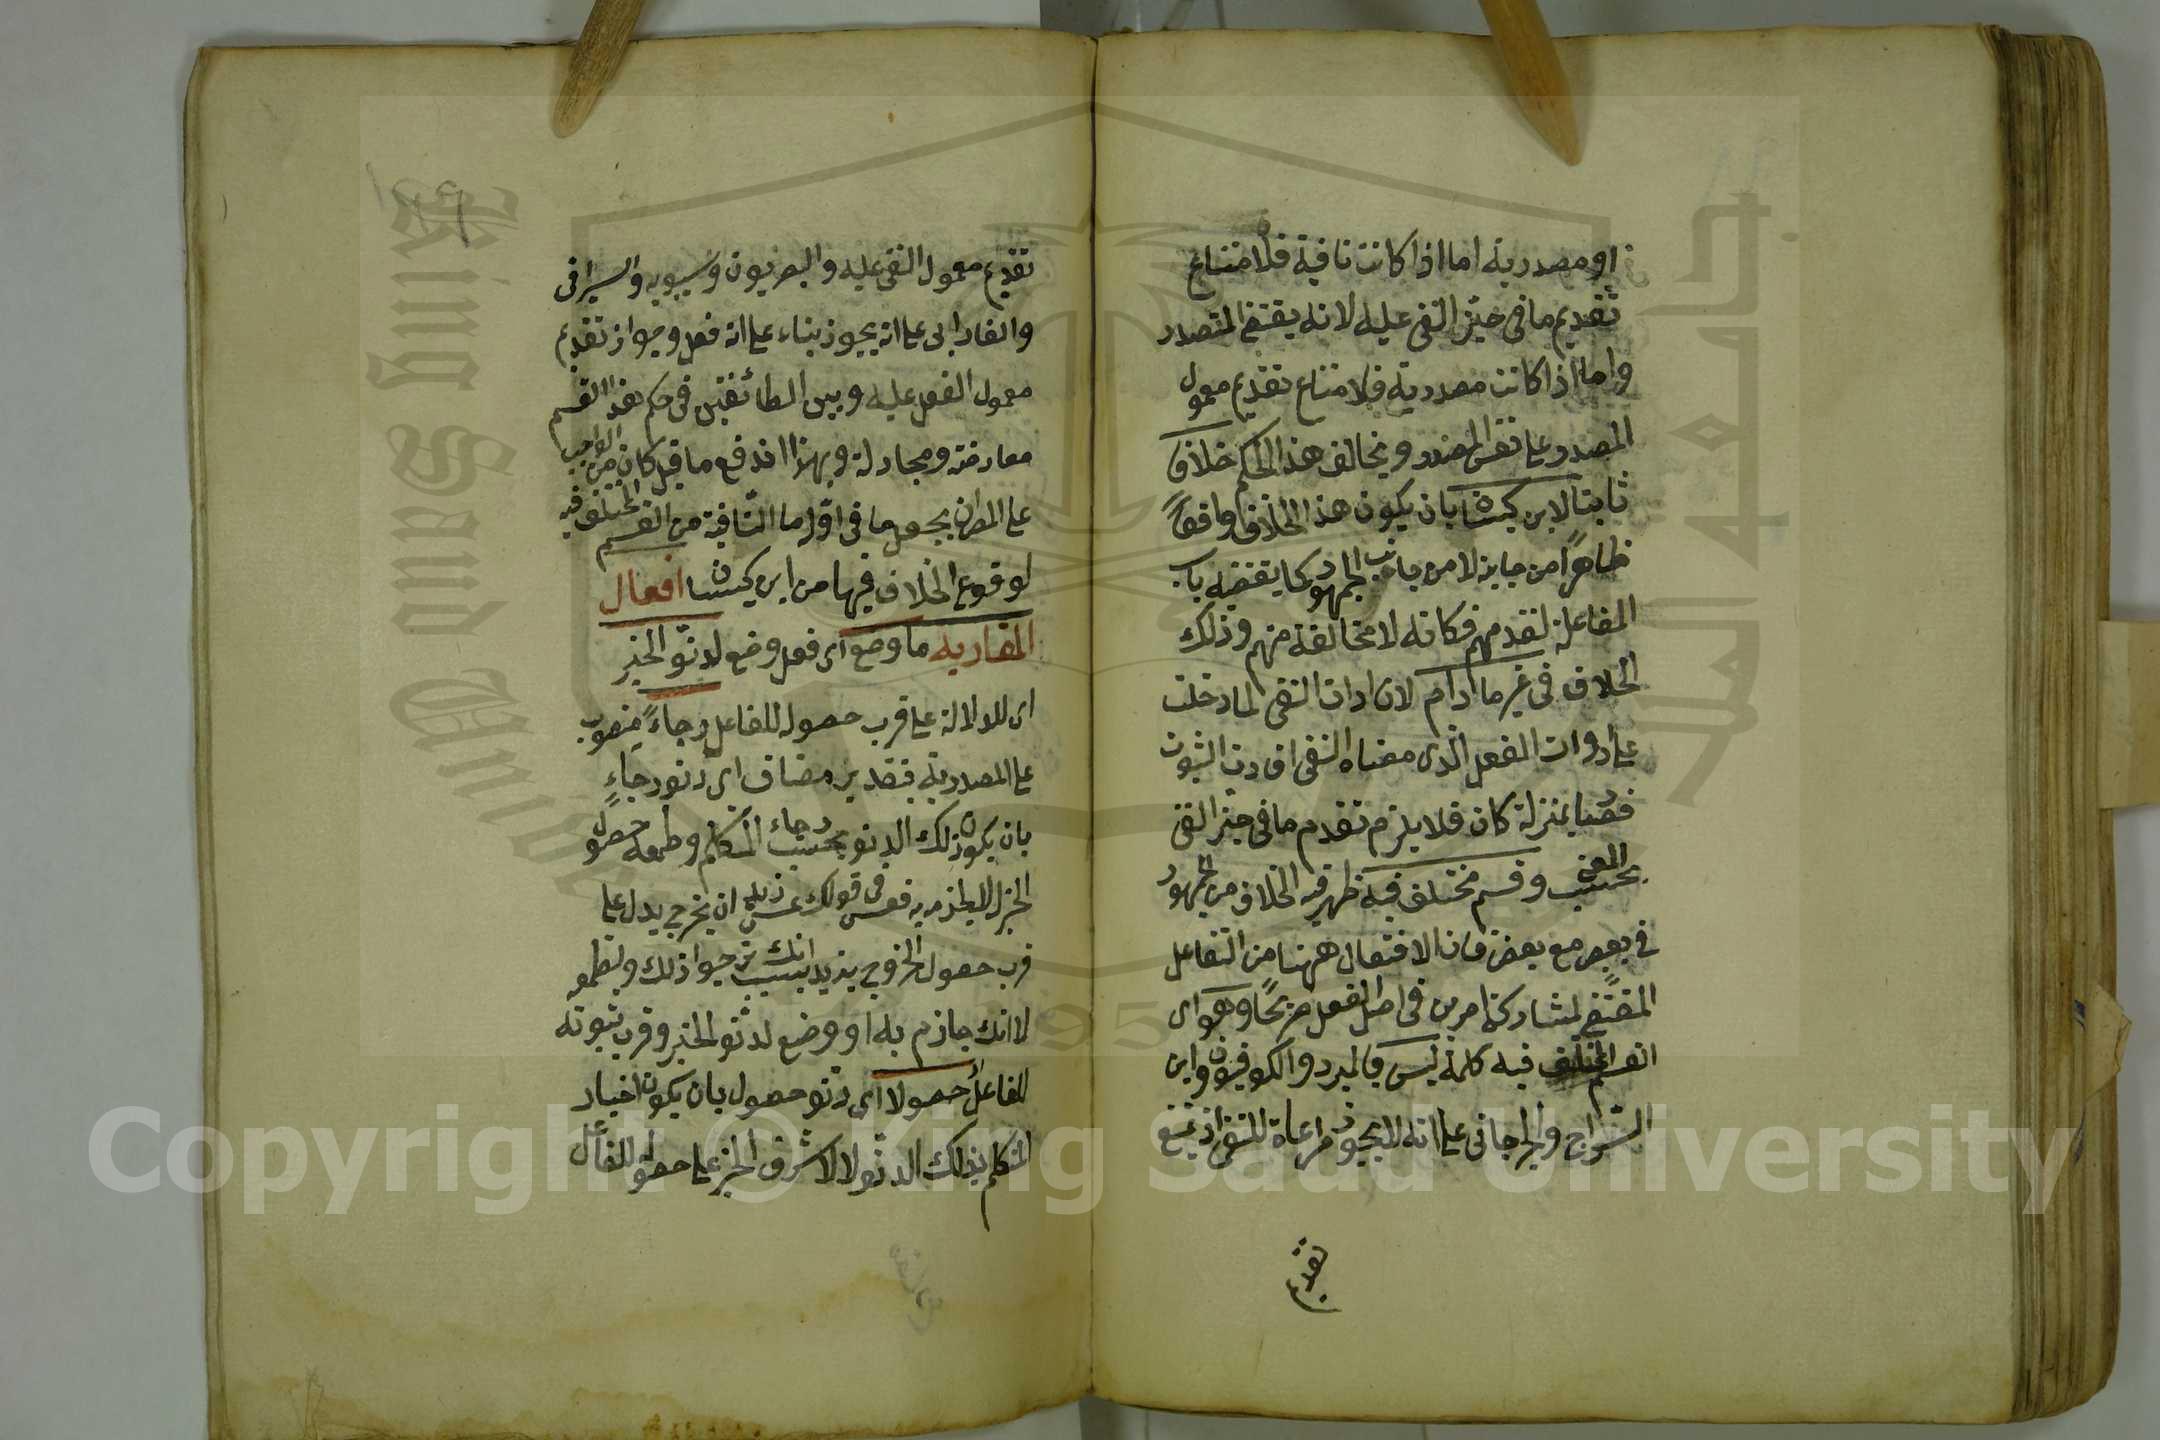 او مصدرية اما اذا كانت نافية فلامتناع
تقديم ما فى حيز النفى عليه لانه يقتضى التصدر
واما اذا كانت مصدرية فلامتناع تقديم معمول
المصدر على نفس المصدر ويخالف هذا الحكم خلافا
ثابتا لابن كيسان بان يكون هذا الخلاف واقعاً
ظاهراً من جانبه لا من جانب الجمهور كما يقتضيه باب
المفاعلة لتقدمهم فكانه لا مخالفة منهم وذلك
الخلاف فى غير ما دام لان ادات النفى لما دخلت
على ادوات الفعل الذى معناه النفى افادت الثبوت
فصار بمنزلة كان فلا يلزم تقديم ما فى حيز النفى
بحسب المعنى وقسم مختلف فيه ظهر فيه الخلاف من الجمهور
فى بعض مع بعض فان الافتعال ههنا من التفاعل
المقتضى لمشاركة امرين فى اصل الفعل صريحاً وهو اى
القسم المختلف فيه كلمة ليس فالمبرد والكوفيون وابن
السراج والجرجانى على انه لا يجوز مراعاة للنفى اذ يمتنع
تقديم
تقديم معمول النفى عليه والبصريون وسيبويه والسيرافى
والفارابى على انه يجوز بناء على انه فعل وجواز تقديم
معمول الفعل عليه وبين الطائفتين فى حكم هذا القسم
معارضة ومجادلة وبهذا اندفع ما قيل كان من الواجب
على المص ان يجعل ما فى اوله ما النافية من القسم المختلف فيه
لوقوع الخلاف فيها من ابن كيسان افعال
المقاربه ما وضع اى فعل وضع لدنو الخبر
اى للدلالة على قرب حصوله للفاعل رجاءً منصوب
على المصدرية بتقدير مضاف اى دنو رجاءٍ
بان يكون ذلك الدنو بحسب رجاء المتكلم وطمعه حصول
الخبر لا لجزمه به فعسى فى قولك عسى زيد ان يخرج يدل على
قرب حصول الخروج لزيد بسبب انك ترجوا ذلك وتطمعه
لا انك جازم به او وضع لدنو الخبر وقرب ثبوته
للفاعل حصولا اى دنو حصول بان يكون اخبار
المتكلم بذلك الدنو لاشراف الخبر على حصوله للفاعل
King Saud University
جامعة الملك سعود
1957
Copyright © King Saud University